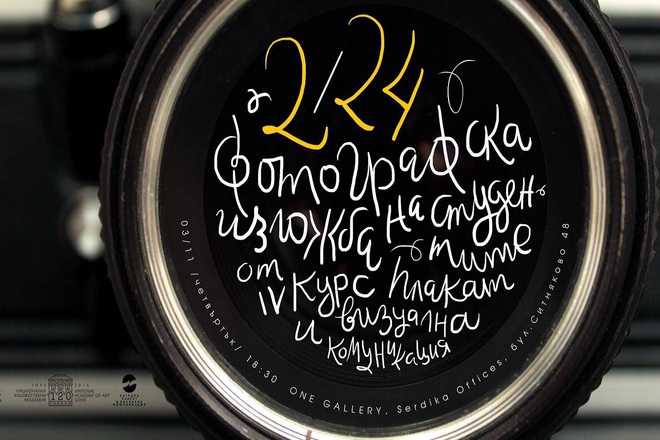 2/24
фотографска
изложба на студен-
тите
от IV курс плакат
визуална
и комуникация
03/11 /четвъртък/ 18:30 ONE GALLERY, Serdika Offices, бул.Ситняково 48
1896 2016
НАЦИОНАЛНА ХУДОЖЕСТВЕНА АКАДЕМИЯ
120
NATIONAL ACADEMY OF ART SOFIA